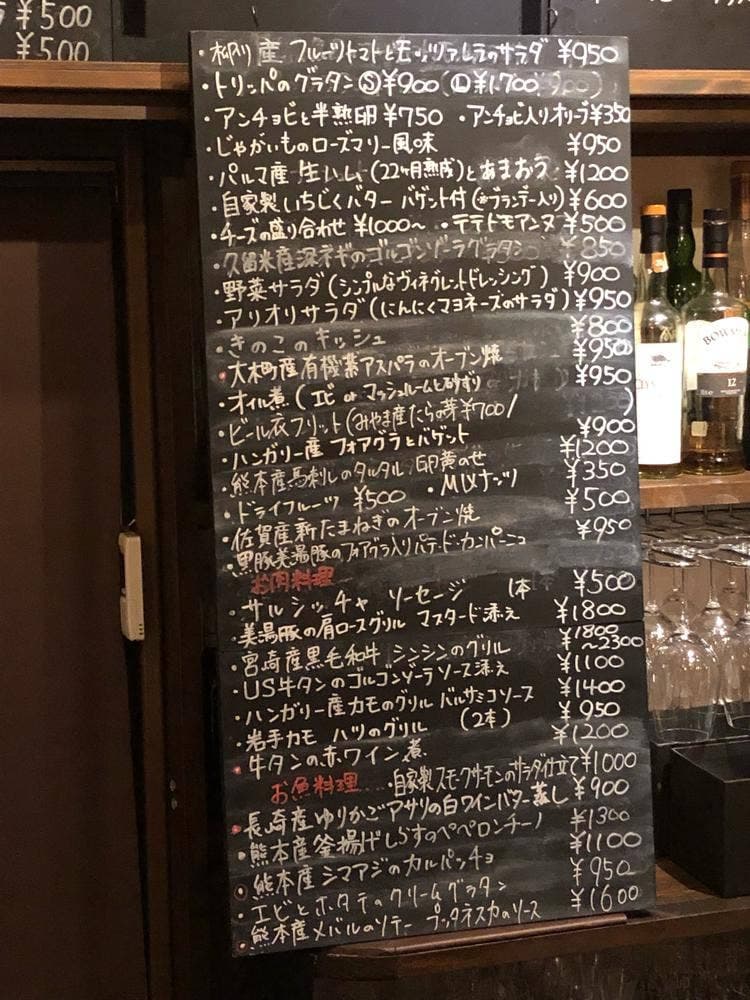 ¥500
¥500
・柳川産 フルーツトマトとモッツァレラのサラダ ¥950
・トリッパのグラタン Ⓢ¥900 (Ⓛ¥1,700)
・アンチョビと半熟卵 ¥750 ・アンチョビ入りオリーブ¥350
・じゃがいものローズマリー風味 ¥950
・パルマ産 生ハム(22ヶ月熟成)とあまおう ¥1200
・自家製いちじくバター バゲット付(※ブランデー入り) ¥600
・チーズの盛り合わせ ¥1000〜 ・テテドモアンヌ ¥500
・久留米産深ネギのゴルゴンゾーラグラタン ¥850
・野菜サラダ(シンプルなヴィネグレットドレッシング) ¥900
・アリオリサラダ(にんにくマヨネーズのサラダ) ¥950
・きのこのキッシュ ¥800
・大木町産有機アスパラのオーブン焼 ¥950
・オイル煮(エビ or マッシュルームと砂ずり ¥950
・ビール衣フリット(みやま産たらの芽¥700/ )
・ハンガリー産 フォアグラとバゲット ¥900
・熊本産馬刺しのタルタル 卵黄のせ ¥1200
・ドライフルーツ ¥500 ・MIXナッツ ¥350
・佐賀産新たまねぎのオーブン焼 ¥500
・黒豚美湯豚のフォアグラ入りパテ・ド・カンパーニュ ¥950
お肉料理
・サルシッチャ ソーセージ 1本 ¥500
・美湯豚の肩ロースグリル マスタード添え ¥1800
・宮崎産黒毛和牛 シンシンのグリル ¥1800〜2300
・US牛タンのゴルゴンゾーラソース添え ¥1100
・ハンガリー産カモのグリル バルサミコソース ¥1400
・岩手カモ ハツのグリル (2本) ¥950
・牛タンの赤ワイン煮 ¥1200
お魚料理 ・自家製スモークサーモンのサラダ仕立て ¥1000
・長崎産ゆりかごアサリの白ワインバター蒸し ¥900
・熊本産釜揚げしらすのペペロンチーノ ¥1300
・熊本産シマアジのカルパッチョ ¥1100
・エビとホタテのクリームグラタン ¥950
・熊本産メバルのソテー プッタネスカのソース ¥1600
BOWM
12